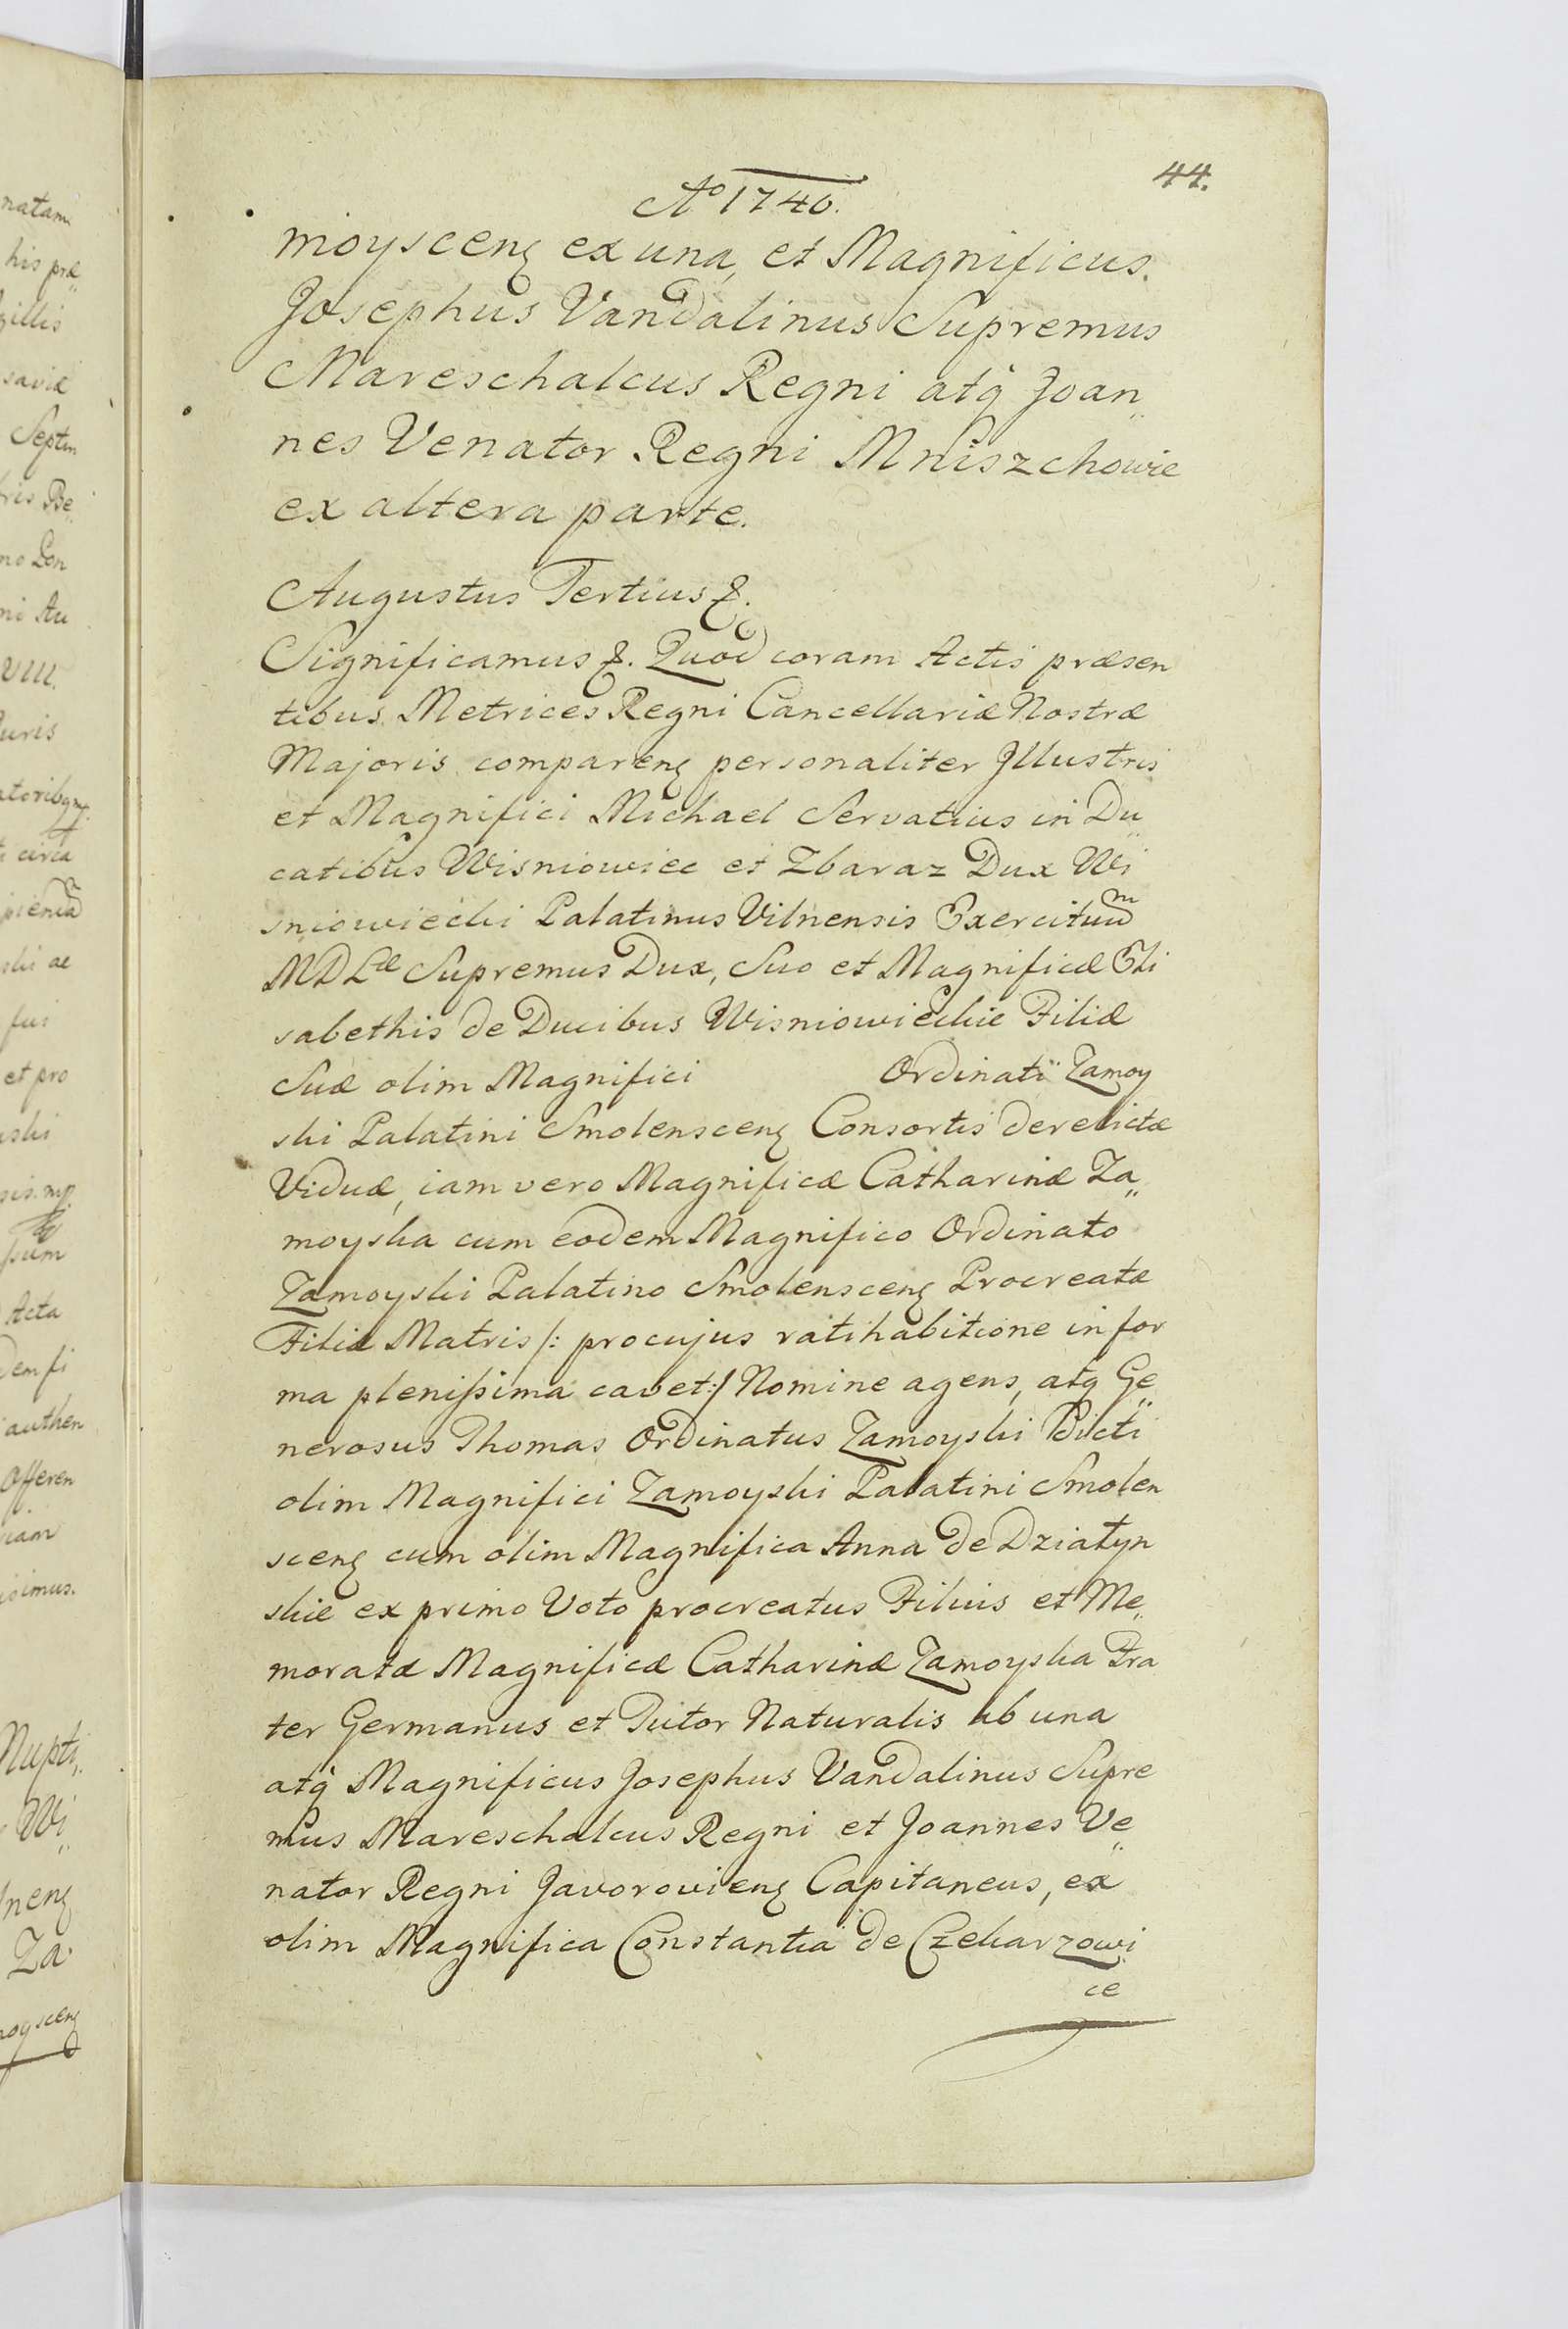 44.
Aº 1740.
moyscenȩ ex una, et Magnificus.
Josephus Vandalinus Supremus
Mareschalcus Regni atq̃ Joan„
nes Venator Regni Mniszchowie
ex altera parte.
Augustus Tertius &.
Significamus &. Quod coram Actis præsen
tibus Metrices Regni Cancellariæ Nostræ
Majoris comparenȩ personaliter Jllustris
et Magnifici Michael Servatius in Du„
catibus Wisniowiec et Zbaraz Dux Wi
sniowiecki Palatinus Vilnensis Exercituũm
MDLæ Supremus Dux, Suo et Magnificæ Eli
sabethis de Ducibus Wisniowieckie Filiæ
Suæ olim Magnifici Ordinati Zamoy
ski Palatini Smolenscenȩ Consortis derelictæ
Viduæ, iam vero Magnificæ Catharinæ Za„
moyska cum eodem Magnifico Ordinato
Zamoyski Palatino Smolenscenȩ Procreatæ
Filiæ Matris /: pro cujus ratihabitione in for
ma plenissima cavet:/ Nomine agens, atq̃ Ge„
nerosus Thomas Ordinatus Zamoyski Dicti
olim Magnifici Zamoyski Palatini Smolen
scenȩ cum olim Magnifica Anna de Dziatyn
skie ex primo Voto procreatus Filius et Me„
moratæ Magnificæ Catharinæ Zamoyska Fra
ter Germanus et Tutor Naturalis ab una
atq̃ Magnificus Josephus Vandalinus Supre
mus Mareschalcus Regni et Joannes Ve„
nator Regni Javorovienȩ Capitaneus, ex
olim Magnifica Constantia de Czekarzowi
ce